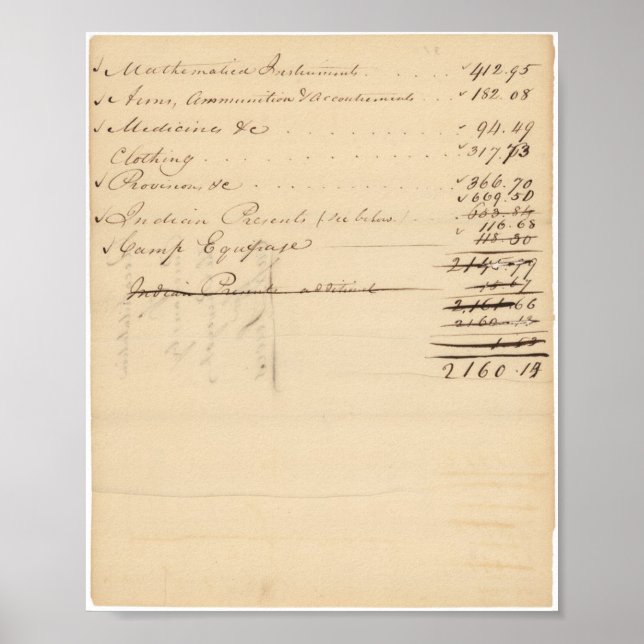 Mathematical Instruments . . . . . 412.95
Arms, Ammunition & Accoutrements . . . 182.08
Medicines &c . . . . . . . . 94.49
Clothing . . . . . . . . . 317.73
Provisions &c . . . . . . . . 366.70
669.50
Indian Presents (see below) . . 663.84
116.68
Camp Equipage 118.30
2145.79
Indian Presents additional 15.67
2,161.66
2160.13
2160.14